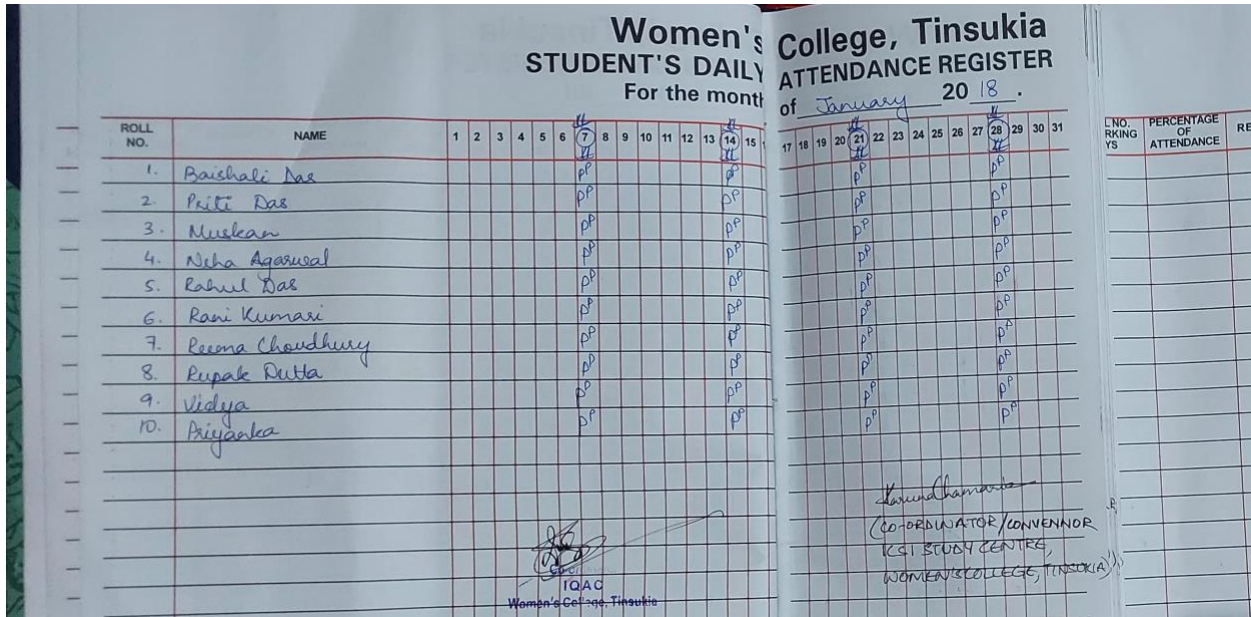 Women's College, Tinsukia
STUDENT'S DAILY ATTENDANCE REGISTER
For the month of January 2018.
ROLL NO. NAME 1 2 3 4 5 6 7 8 9 10 11 12 13 14 15 17 18 19 20 21 22 23 24 25 26 27 28 29 30 31 L NO. RKING YS PERCENTAGE OF ATTENDANCE RE
1. Baishali Das PP PP PP PP
2. Priti Das PP PP PP PP
3. Muskan PP PP PP PP
4. Neha Agarwal PP PP PP PP
5. Rahul Das PP PP PP PP
6. Rani Kumari PP PP PP PP
7. Reema Choudhury PP PP PP PP
8. Rupak Dutta PP PP PP PP
9. Vidya PP PP PP PP
10. Priyanka PP PP PP PP
(CO-ORDINATOR/CONVENNOR
ICSI STUDY CENTRE,
WOMEN'S COLLEGE, TINSUKIA)
IQAC
Women's College, Tinsukia